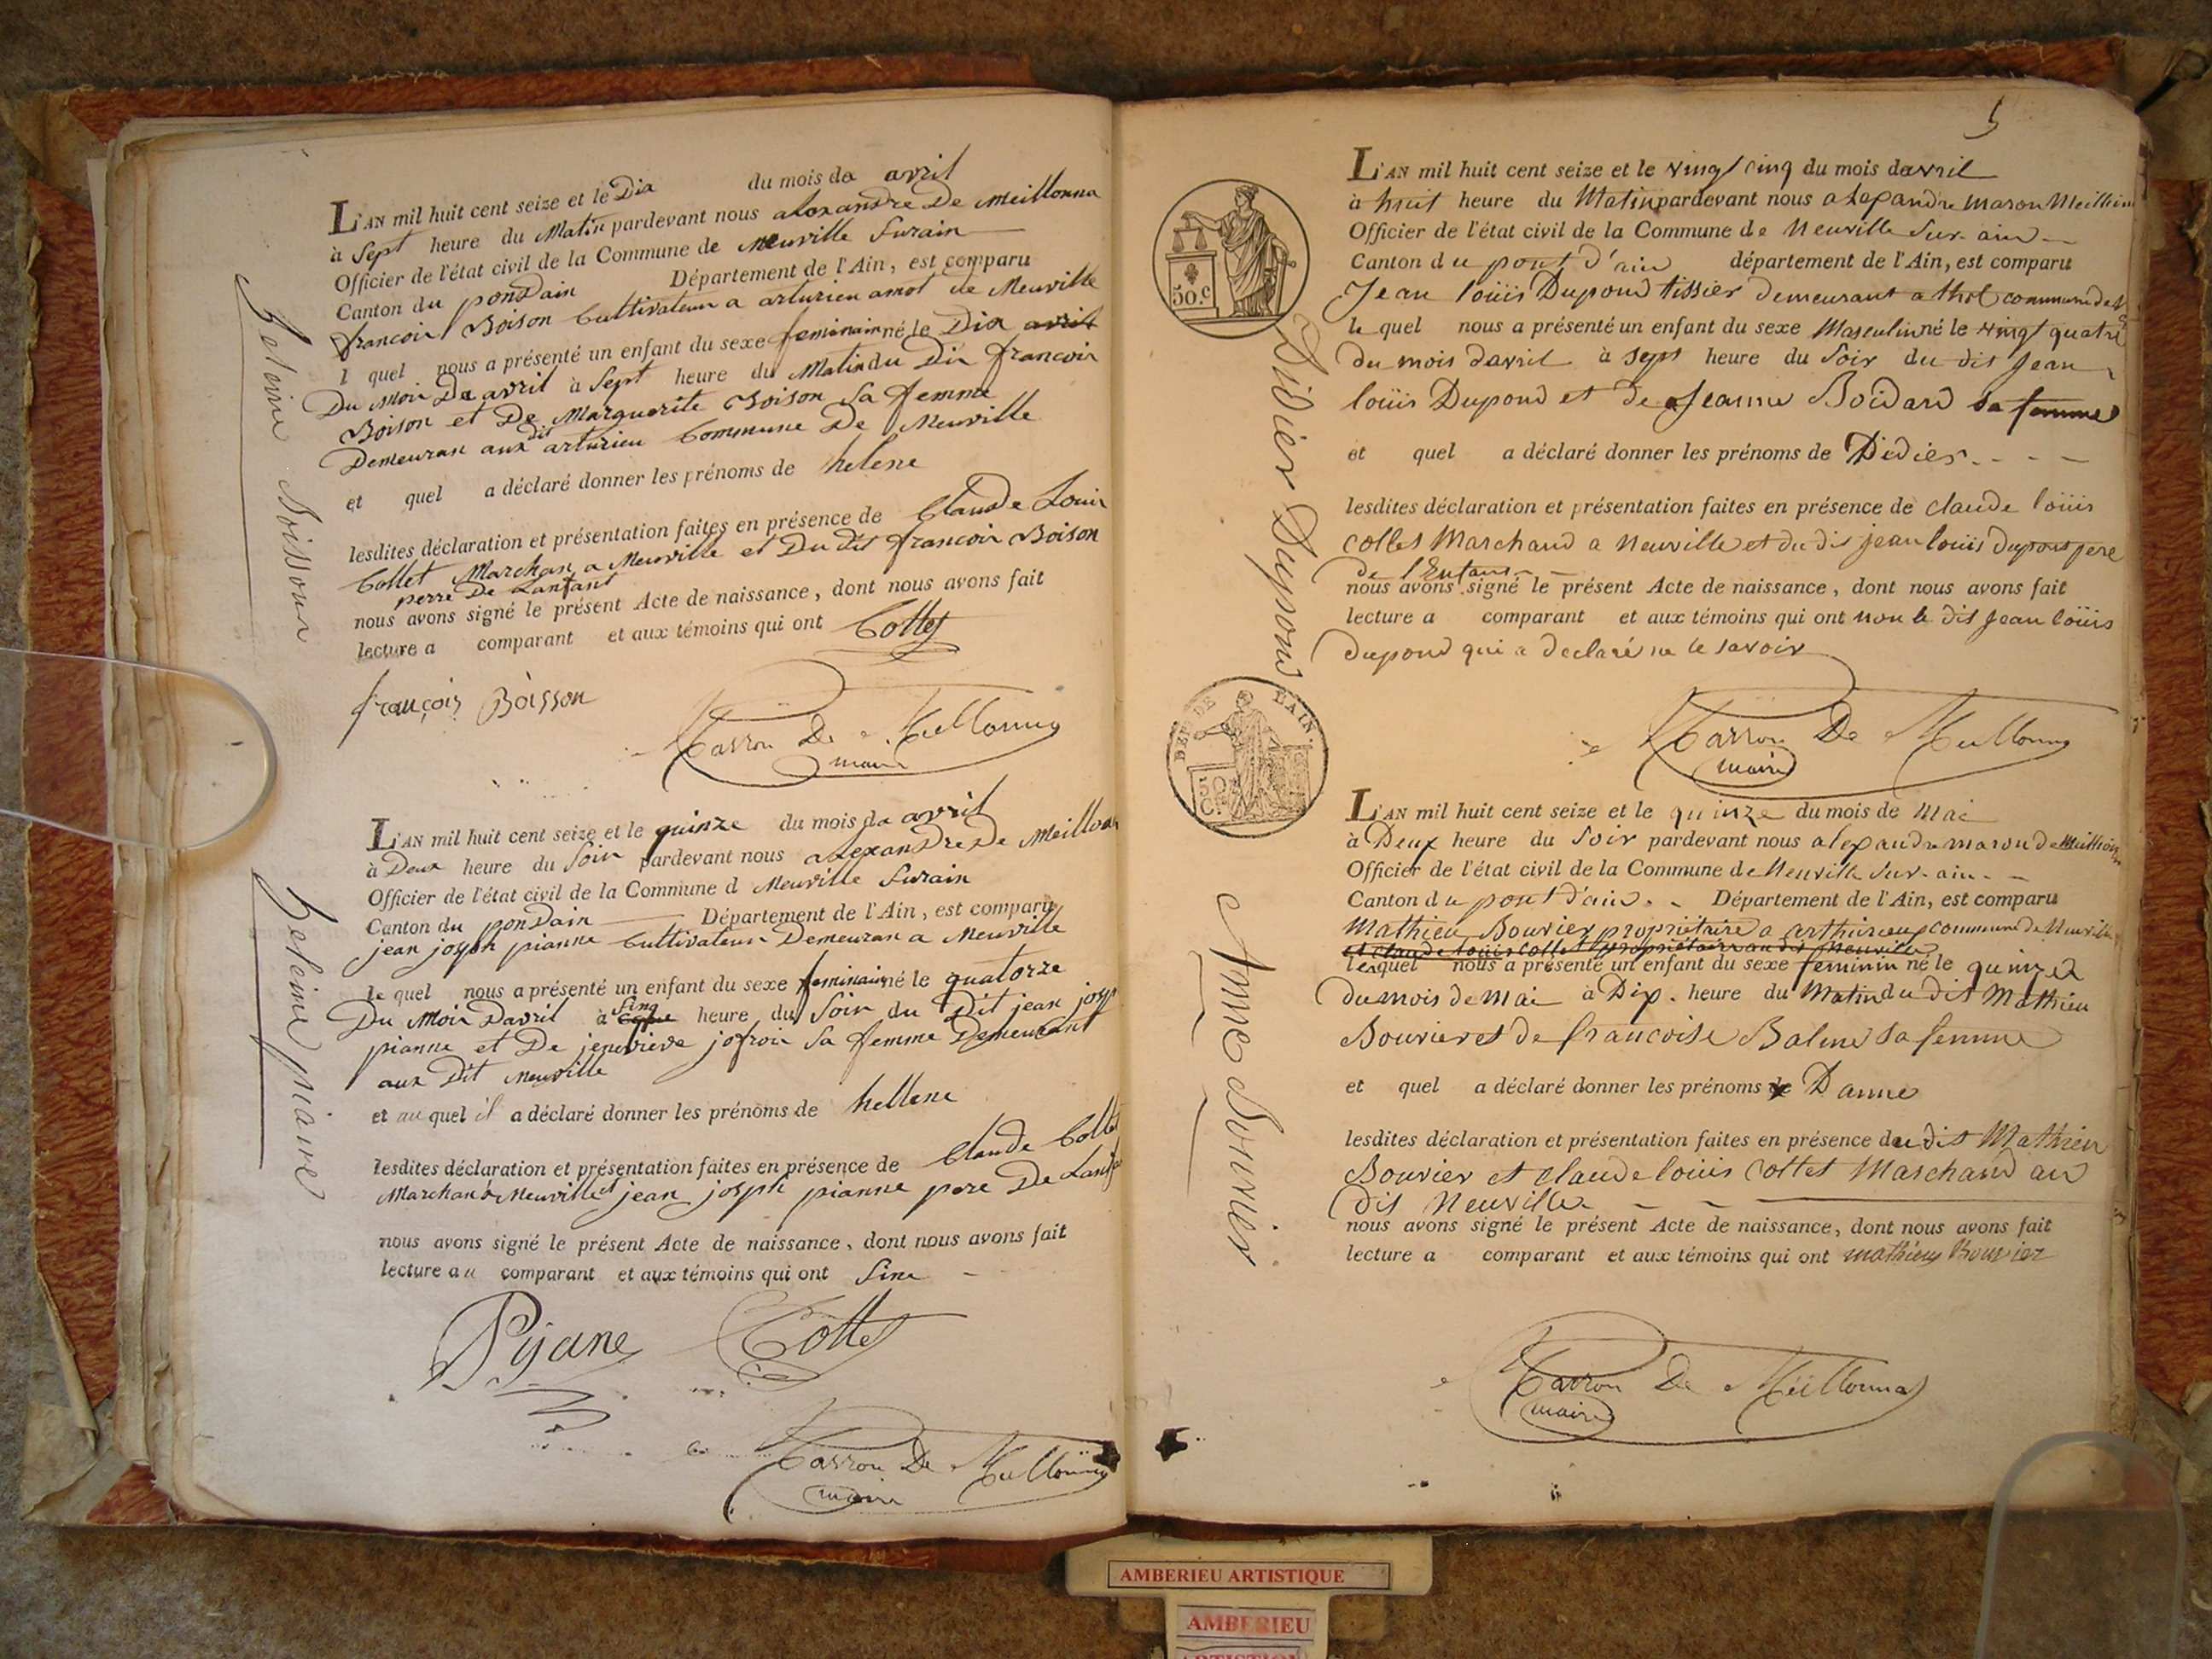 heleine Boisson
L'AN mil huit cent seize et le Dix du mois de avril
à Sept heure du Matin pardevant nous alexandre De Meillonna
Officier de l'état civil de la Commune de Neuville Surain
Canton du pondain Département de l'Ain, est comparu
francois Boison Cultivateur a arturieu amot de Neuville
l quel nous a présenté un enfant du sexe feminain né le Dix avril
Du Moi De avril à Sept heure du Matin du Dit francois
Boison et De Marguerite Boison Sa femme
Demeuran aux dit arturieu Commune De Neuville
et quel a déclaré donner les prénoms de helene
lesdites déclaration et présentation faites en présence de Claude Louis
Collet Marchan a Neuville et Du dit francois Boison
perre De Lanfant
nous avons signé le présent Acte de naissance, dont nous avons fait
lecture a comparant et aux témoins qui ont Collet
françois Boisson
Marron De Meillonnas
maire
heleine piane
L'AN mil huit cent seize et le quinze du mois de avril
à Deux heure du Soir pardevant nous alexandre De Meillon
Officier de l'état civil de la Commune d Neuville Surain
Canton du pondain Département de l'Ain, est comparu
jean joseph pianne Cultivateur Demeuran a Neuville
le quel nous a présenté un enfant du sexe feminain né le quatorze
Du Moi Davril à Sinq heure du Soir du Dit jean josp
pianne et De jenevieve jofroi Sa femme Demeurant
aux Dit Neuville
et au quel il a déclaré donner les prénoms de hellene
lesdites déclaration et présentation faites en présence de Claude Collet
Marchan a Neuville et jean josph pianne pere De Lanf
nous avons signé le présent Acte de naissance, dont nous avons fait
lecture au comparant et aux témoins qui ont Sine
Pijane Collet
Marron De Meillonnas
maire
5
50.c
Didier Dupond
L'AN mil huit cent seize et le vingt cinq du mois davril
à huit heure du Matin pardevant nous alexandre maron Meillion
Officier de l'état civil de la Commune de Neuville Sur-ain
Canton du pont d'ain département de l'Ain, est comparu
Jean loüis Dupond tissier demeurant a thol commune de
le quel nous a présenté un enfant du sexe Masculin né le vingt quatre
du mois davril à sept heure du Soir du dit Jean
loüis Dupond et de Jeanne Boidard sa femme
et quel a déclaré donner les prénoms de Didier
lesdites déclaration et présentation faites en présence de claude loüis
collet Marchand a Neuville et du dit jean loüis dupont pere
de l'Enfant
nous avons signé le présent Acte de naissance, dont nous avons fait
lecture a comparant et aux témoins qui ont non le dit Jean loüis
dupond qui a declaré ne le savoir
Marron De Meillonnas
maire
DEP. DE L'AIN.
50 C.
Anne Bouvier
L'AN mil huit cent seize et le quinze du mois de Mai
à Deux heure du Soir pardevant nous alexandre maron de Meillion
Officier de l'état civil de la Commune de Neuville Sur-ain
Canton du pont d'ain Département de l'Ain, est comparu
Mathieu Bouvier propriétaire a arthurieux commune de Neuville
et claude louis collet propriétaire au dit Neuville
lesquel nous a présenté un enfant du sexe feminin né le quinze
du mois de mai à Dix heure du Matin du dit Mathieu
Bouvier et de francoise Balme sa femme
et quel a déclaré donner les prénoms de Danne
lesdites déclaration et présentation faites en présence du dit Mathieu
Bouvier et claude louis collet Marchand au
dit Neuville
nous avons signé le présent Acte de naissance, dont nous avons fait
lecture a comparant et aux témoins qui ont mathieu Bouvier
Marron De Meillonnas
maire
AMBERIEU ARTISTIQUE
AMBERIEU
ARTISTIQUE